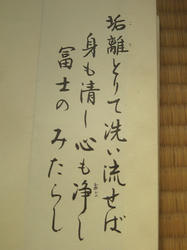 垢離とりて洗い流せば
身も清し心も浄し
冨士の みたらし